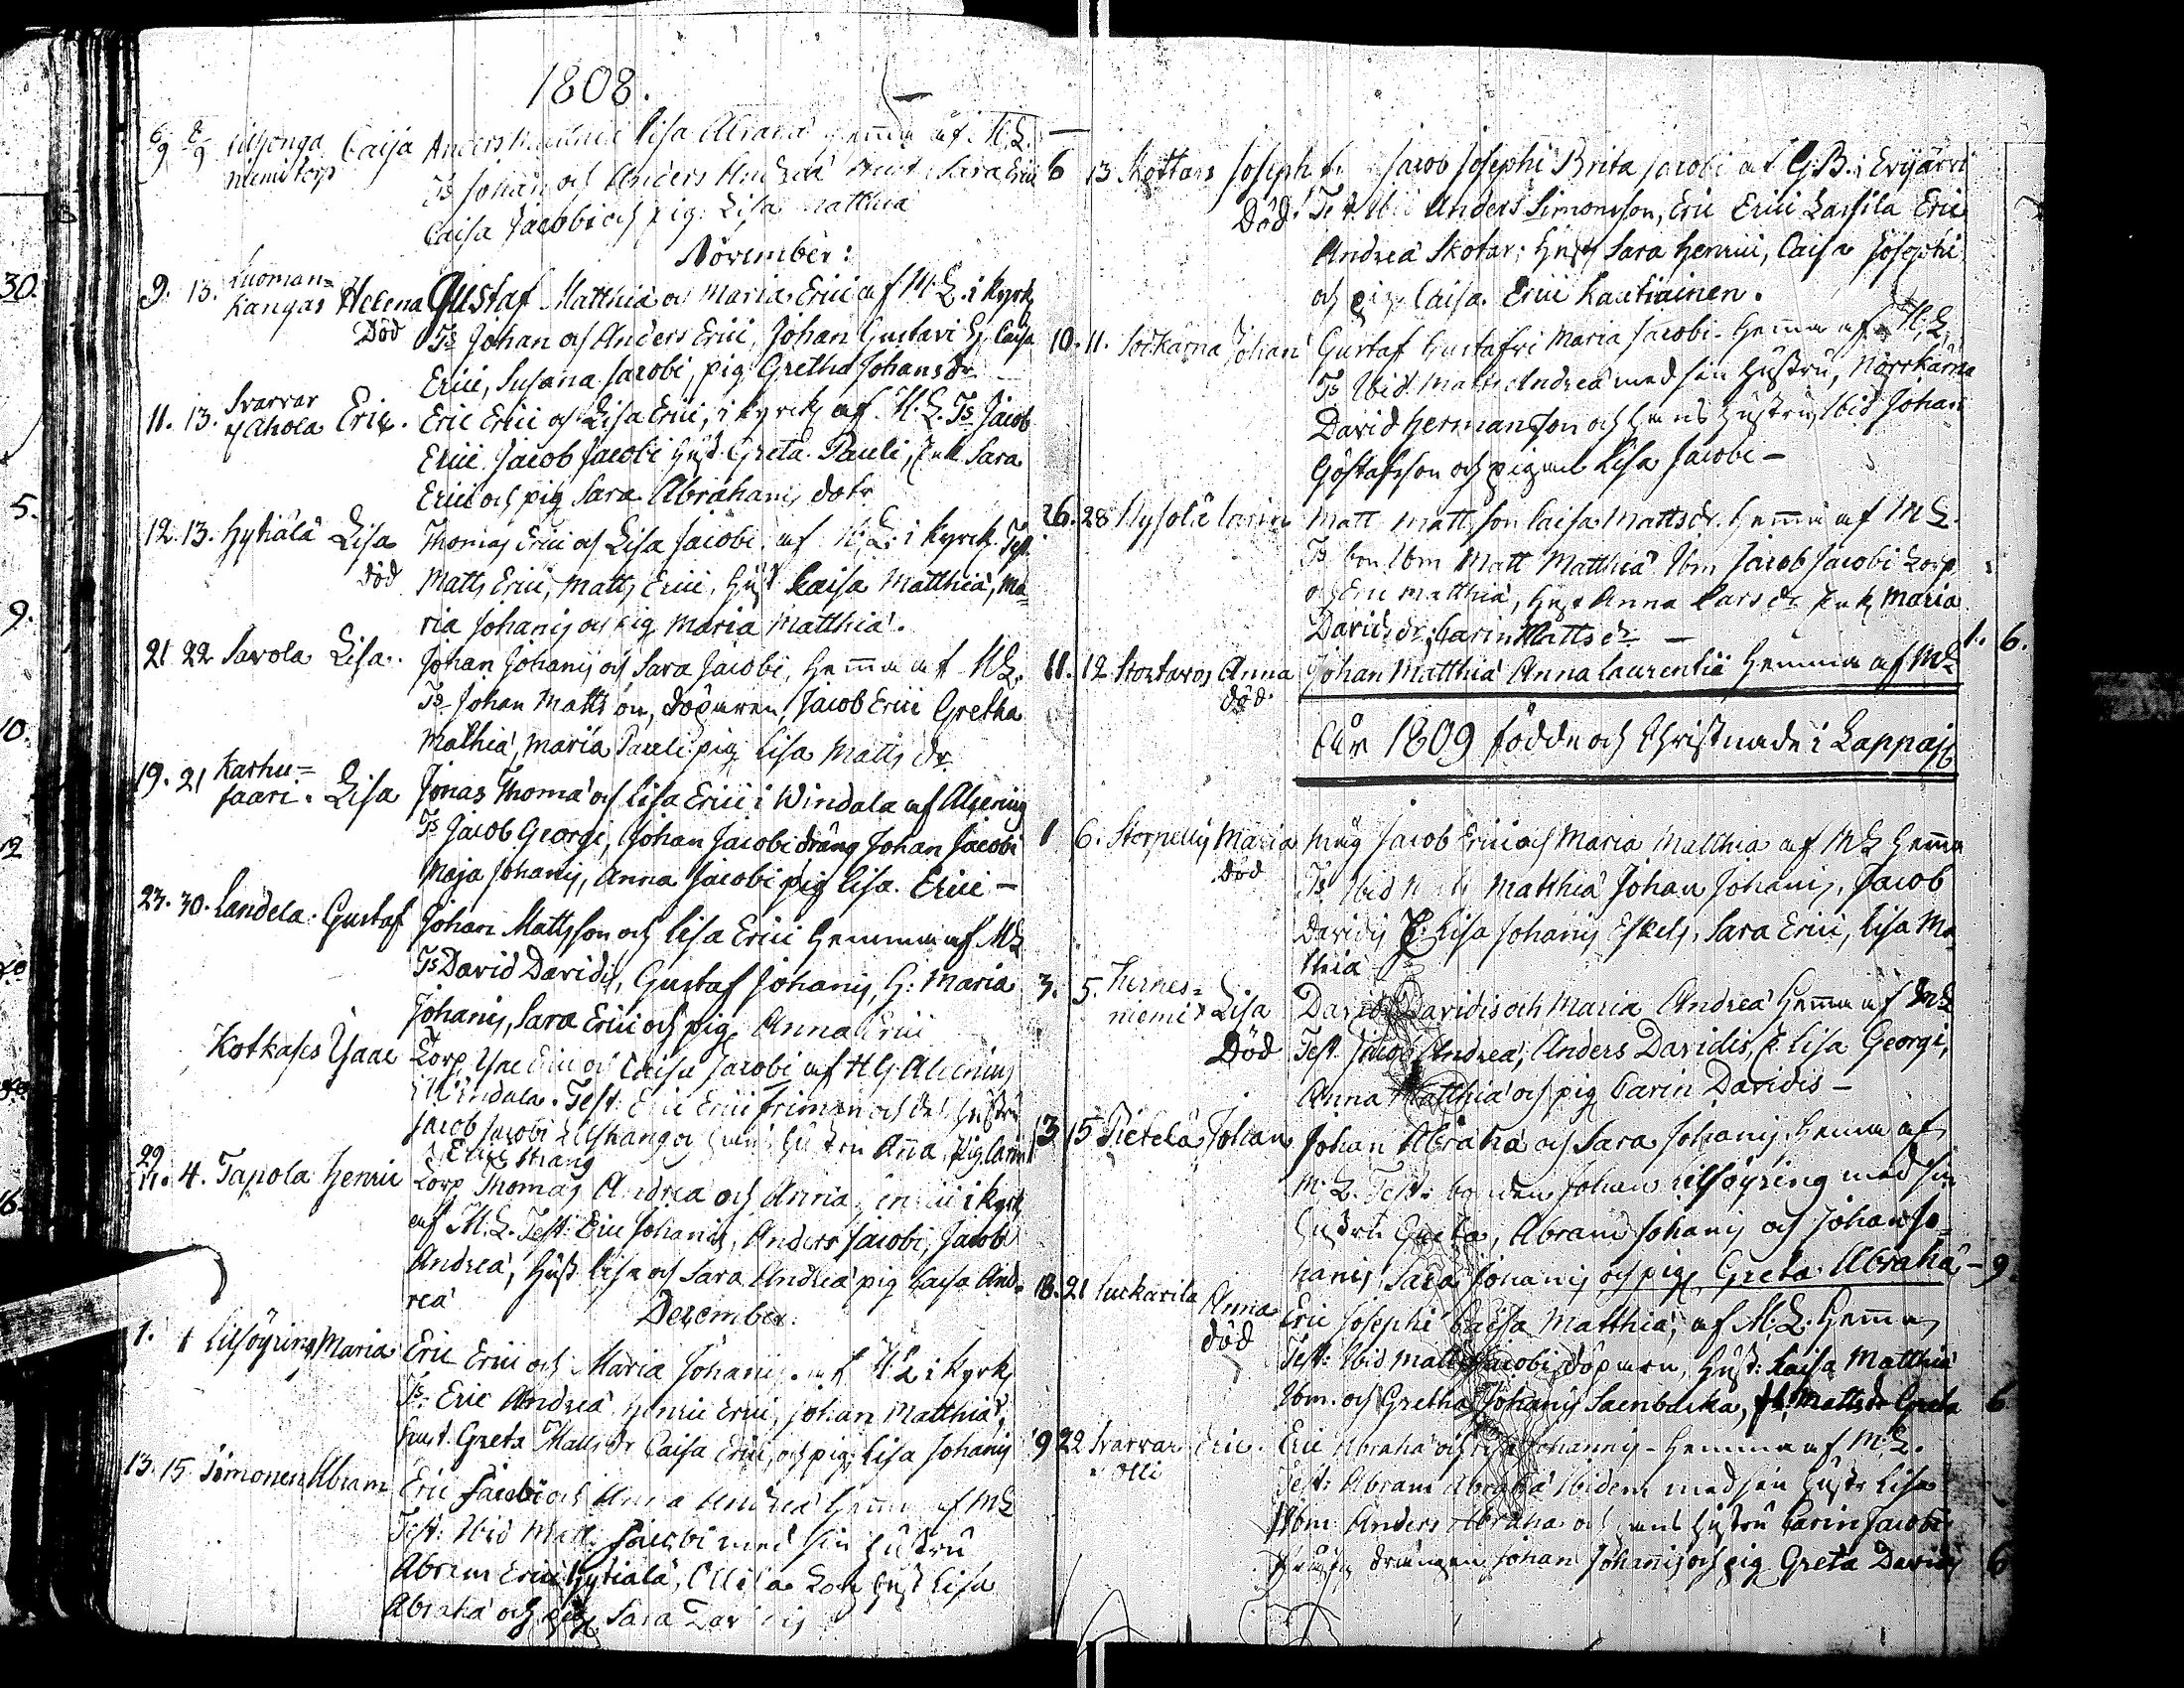 1808.
6/9 8/9 Caisa Anders Lisa Abraha hemma af M:L.
niemi torp Ts Johan och Anders Andreä Sara Erici
Caisa Jacobi och pig. Lisa Matthiä
November:
9. 13. Luoman=
kangas Helena Gustaf Matthiä och Maria Erici af M.L. i kyrk
Död Ts Johan och Anders Erici, Johan Gustavi H. Caisa
Erici, Susana Jacobi, pig Gretha Johansdr
11. 13. Svarvar
Ahola Eric. Eric Erici och Lisa Erici, i kyrck af M.L. Ts Jacob
Erici Jacob Jacobi Hust. Greta Pauli, Enk Sara
Erici och pig Sara Abrahams dotr
12. 13. Hytiälä Lisa Thomas Erici och Lisa Jacobi af M:L: i kyrck. Test.
död Matts Erici, Matts Erici, Hust Caisa Matthiä, Ma=
ria Johanis och pig Maria Matthiä.
21 22 Savola Lisa. Johan Johanis och Sara Jacobi, hemma af ML.
Ts Johan Mattson, döparen, Jacob Erici Gretha
Mathiä, Maria Pauli pig Lisa Matts dr
19. 21 Karhu=
saari. Lisa Jonas Thomä och Lisa Erici i Windala af Alcenius
Ts Jacob Georgi, Johan Jacobi dräng Johan Jacobi
Maja Johanis, Anna Jacobi pig Lisa Erici —
23. 30. Landela. Gustaf Johan Mattsson och Lisa Erici hemma af ML
Ts David Davidis, Gustaf Johanis, H: Maria
Johanis, Sara Erici och pig Anna Erici
Kotkajes Isaac Torp Isac Erici och Caisa Jacobi af HG Alcenius
i Windala. Test: Eric Erici Friman och des hustru
Jacob Jacobi och hans hustru Anna, pig Carin
Erici Strang
29/11. 4. Tapola Henric Torp Thomas Andreä och Anna i kyrk
af M.L. Test: Eric Johanis, Anders Jacobi, Jacob
Andreä, Hust Lisa och Sara Andreä pig Caisa And=
reä
December.
1. 1 Lillsöyring Maria Eric Erici och Maria Johanis af ML i kyrk
Ts. Eric Andreä Henric Erici, Johan Matthiä,
hust. Greta Mattsdr Caisa Erici, och pig: Lisa Johanis
13. 15 Simonen Abram Eric Jacobi och Anna Andreä hemma af ML
Test: Ibid Matts Jacobi med sin hustru
Abram Erici Hytiälä, hust Lisa
Abrahä och pig Sara Davidis
6 13 Skottars Joseph Jacob Josephi Brita Jacobi af G.B. i Evijärvi
Död Test. Ibid Anders Simonsson, Eric Erici Lassila Eric
Andreä Skotar; Hust Sara Henrici, Caisa Josephi
och pig Caisa Erici Kautiainen.
10. 11. Sorkarna Johan Gustaf Gustafvi Maria Jacobi. hemma af M:L.
Ts Ibid. Matts Andreä med sin hustru, Norrkärna
David Hermansson och hans hustru, Ibid Johan
Göstafsson och pigan Lisa Jacobi —
26. 28 Carin Matt Mattsson Caisa Mattsdr. hemma af ML.
Ts bon Ibm Matt Matthiä Ibm Jacob Jacobi torp
och Eric Matthiä, Hust Anna Larsdr Enk Maria
Davidsdr, Carin Mattsdr —
11. 12 Anna Johan Matthiä Anna Laurentii hemma af ML 1. 6.
död
År 1809 födde och Christnade i Lappajs
1 6. Maria Jacob Erici och Maria Matthiä af ML hemma
Död Ts Ibid Matthiä Johan Johanis, Jacob
Davidis Lisa Johanis Eskels, Sara Erici, Lisa Ma=
thiä
3. 5. Hernes=
niemi Lisa David Davidis och Maria Andreä hemma af ML
Död Test Jacob Andreä, Anders Davidis, Lisa Georgi,
Anna Matthiä och pig Carin Davidis —
13 15 Pietelä Johan Johan Abrahä och Sara Johanis hemma af
M:L. Test: bonden Johan Lillsöyring med sin
hustru Greta, Abram Johanis och Johan Jo=
hanis, Sara Johanis och pig Greta Abrahä — 9
18. 21 Anna Eric Josephi Caisa Matthiä, af M:L. hemma
död Test: Ibid Matts Jacobi, döparen, Hust: Caisa Matthiä
Ibm. och Gretha Johanis Saenbacka, Mattsdr Greta 6
19 22 Svarvar Eric. Eric Abrahä och Lisa Johannis — hemma af M:L.
Olli Test: Abram Abrahä Ibidem med sin hustr Lisa
Ibm Anders Abrahä och hans hustru Carin Jacobi
drängen Johan Johannis och pig Greta Davids 6
30.
5.
9.
10.
12
16.